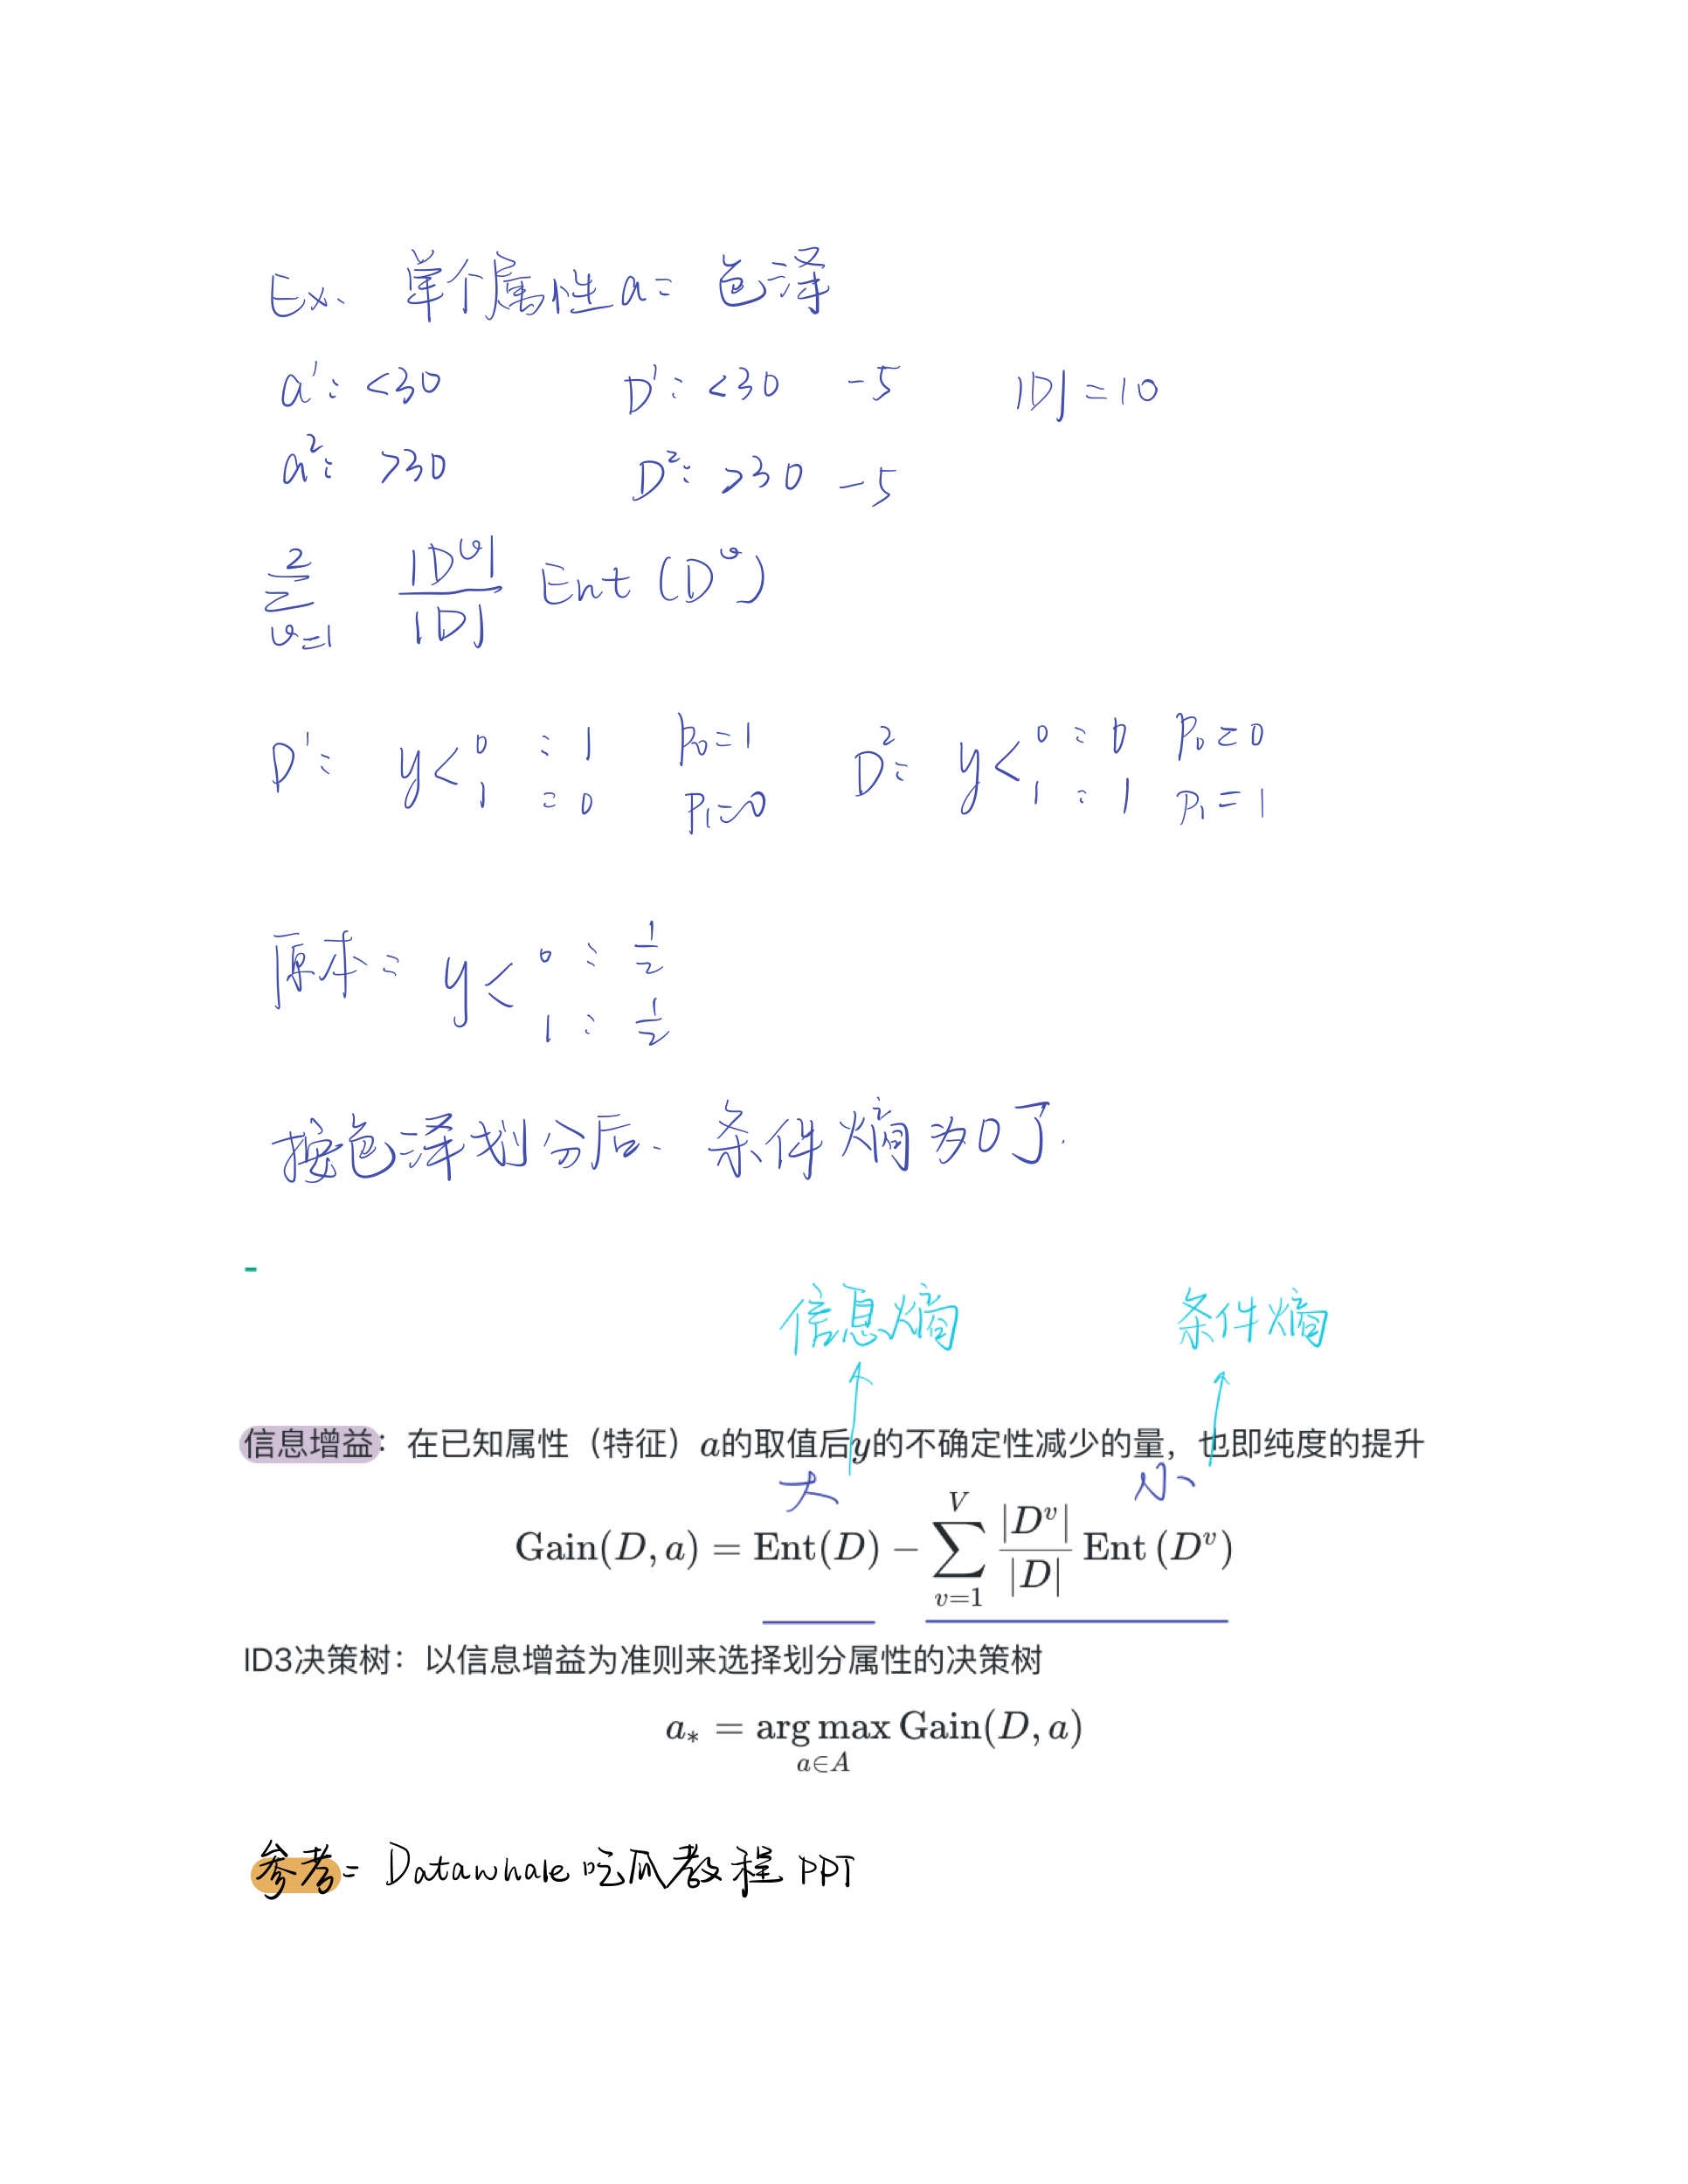 Ex. 单个属性 a = 色泽
a¹: <30 D¹: <30 -5 |D| = 10
a²: >30 D²: >30 -5
\sum_{v=1}^{2} \frac{|D^v|}{|D|} Ent (D^v)
D¹: y < 0 : 1 p₀=1 D²: y < 0 : 0 p₀=0
1 : 0 p₁=0 1 : 1 p₁=1
原本: y < 0 : 1/2
1 : 1/2
按色泽划分后. 条件熵为0了.
信息熵 条件熵
信息增益：在已知属性（特征）a的取值后y的不确定性减少的量，也即纯度的提升
大 小
Gain(D, a) = Ent(D) − \sum_{v=1}^{V} \frac{|D^v|}{|D|} Ent (D^v)
ID3决策树：以信息增益为准则来选择划分属性的决策树
a_* = \arg\max_{a∈A} Gain(D, a)
参考: Datawhale 吃瓜教程 PPT